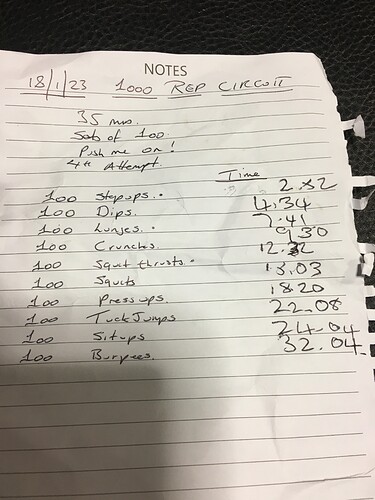 NOTES
18/1/23 1000 REP CIRCUIT
35 mins.
Sets of 100.
Push me on!
4th Attempt.
Time
100 Stepups. 2.52
100 Dips. 4.34
100 Lunges. 7.41
100 Crunches 9.30
100 Squit thrusts. 12.32
100 Squits 13.03
100 Press ups. 18.20
100 Tuck Jumps 22.08
100 Situps 24.04
100 Burpees. 32.04